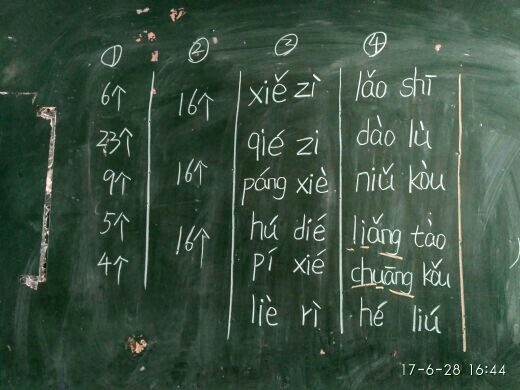 ①
6个
23个
9个
5个
4个
②
16个
16个
16个
③
xiě zì
qié zi
páng xiè
hú dié
pí xié
liè rì
④
lǎo shī
dào lù
niǔ kòu
liǎng tào
chuāng kǒu
hé liú
17-6-28 16:44